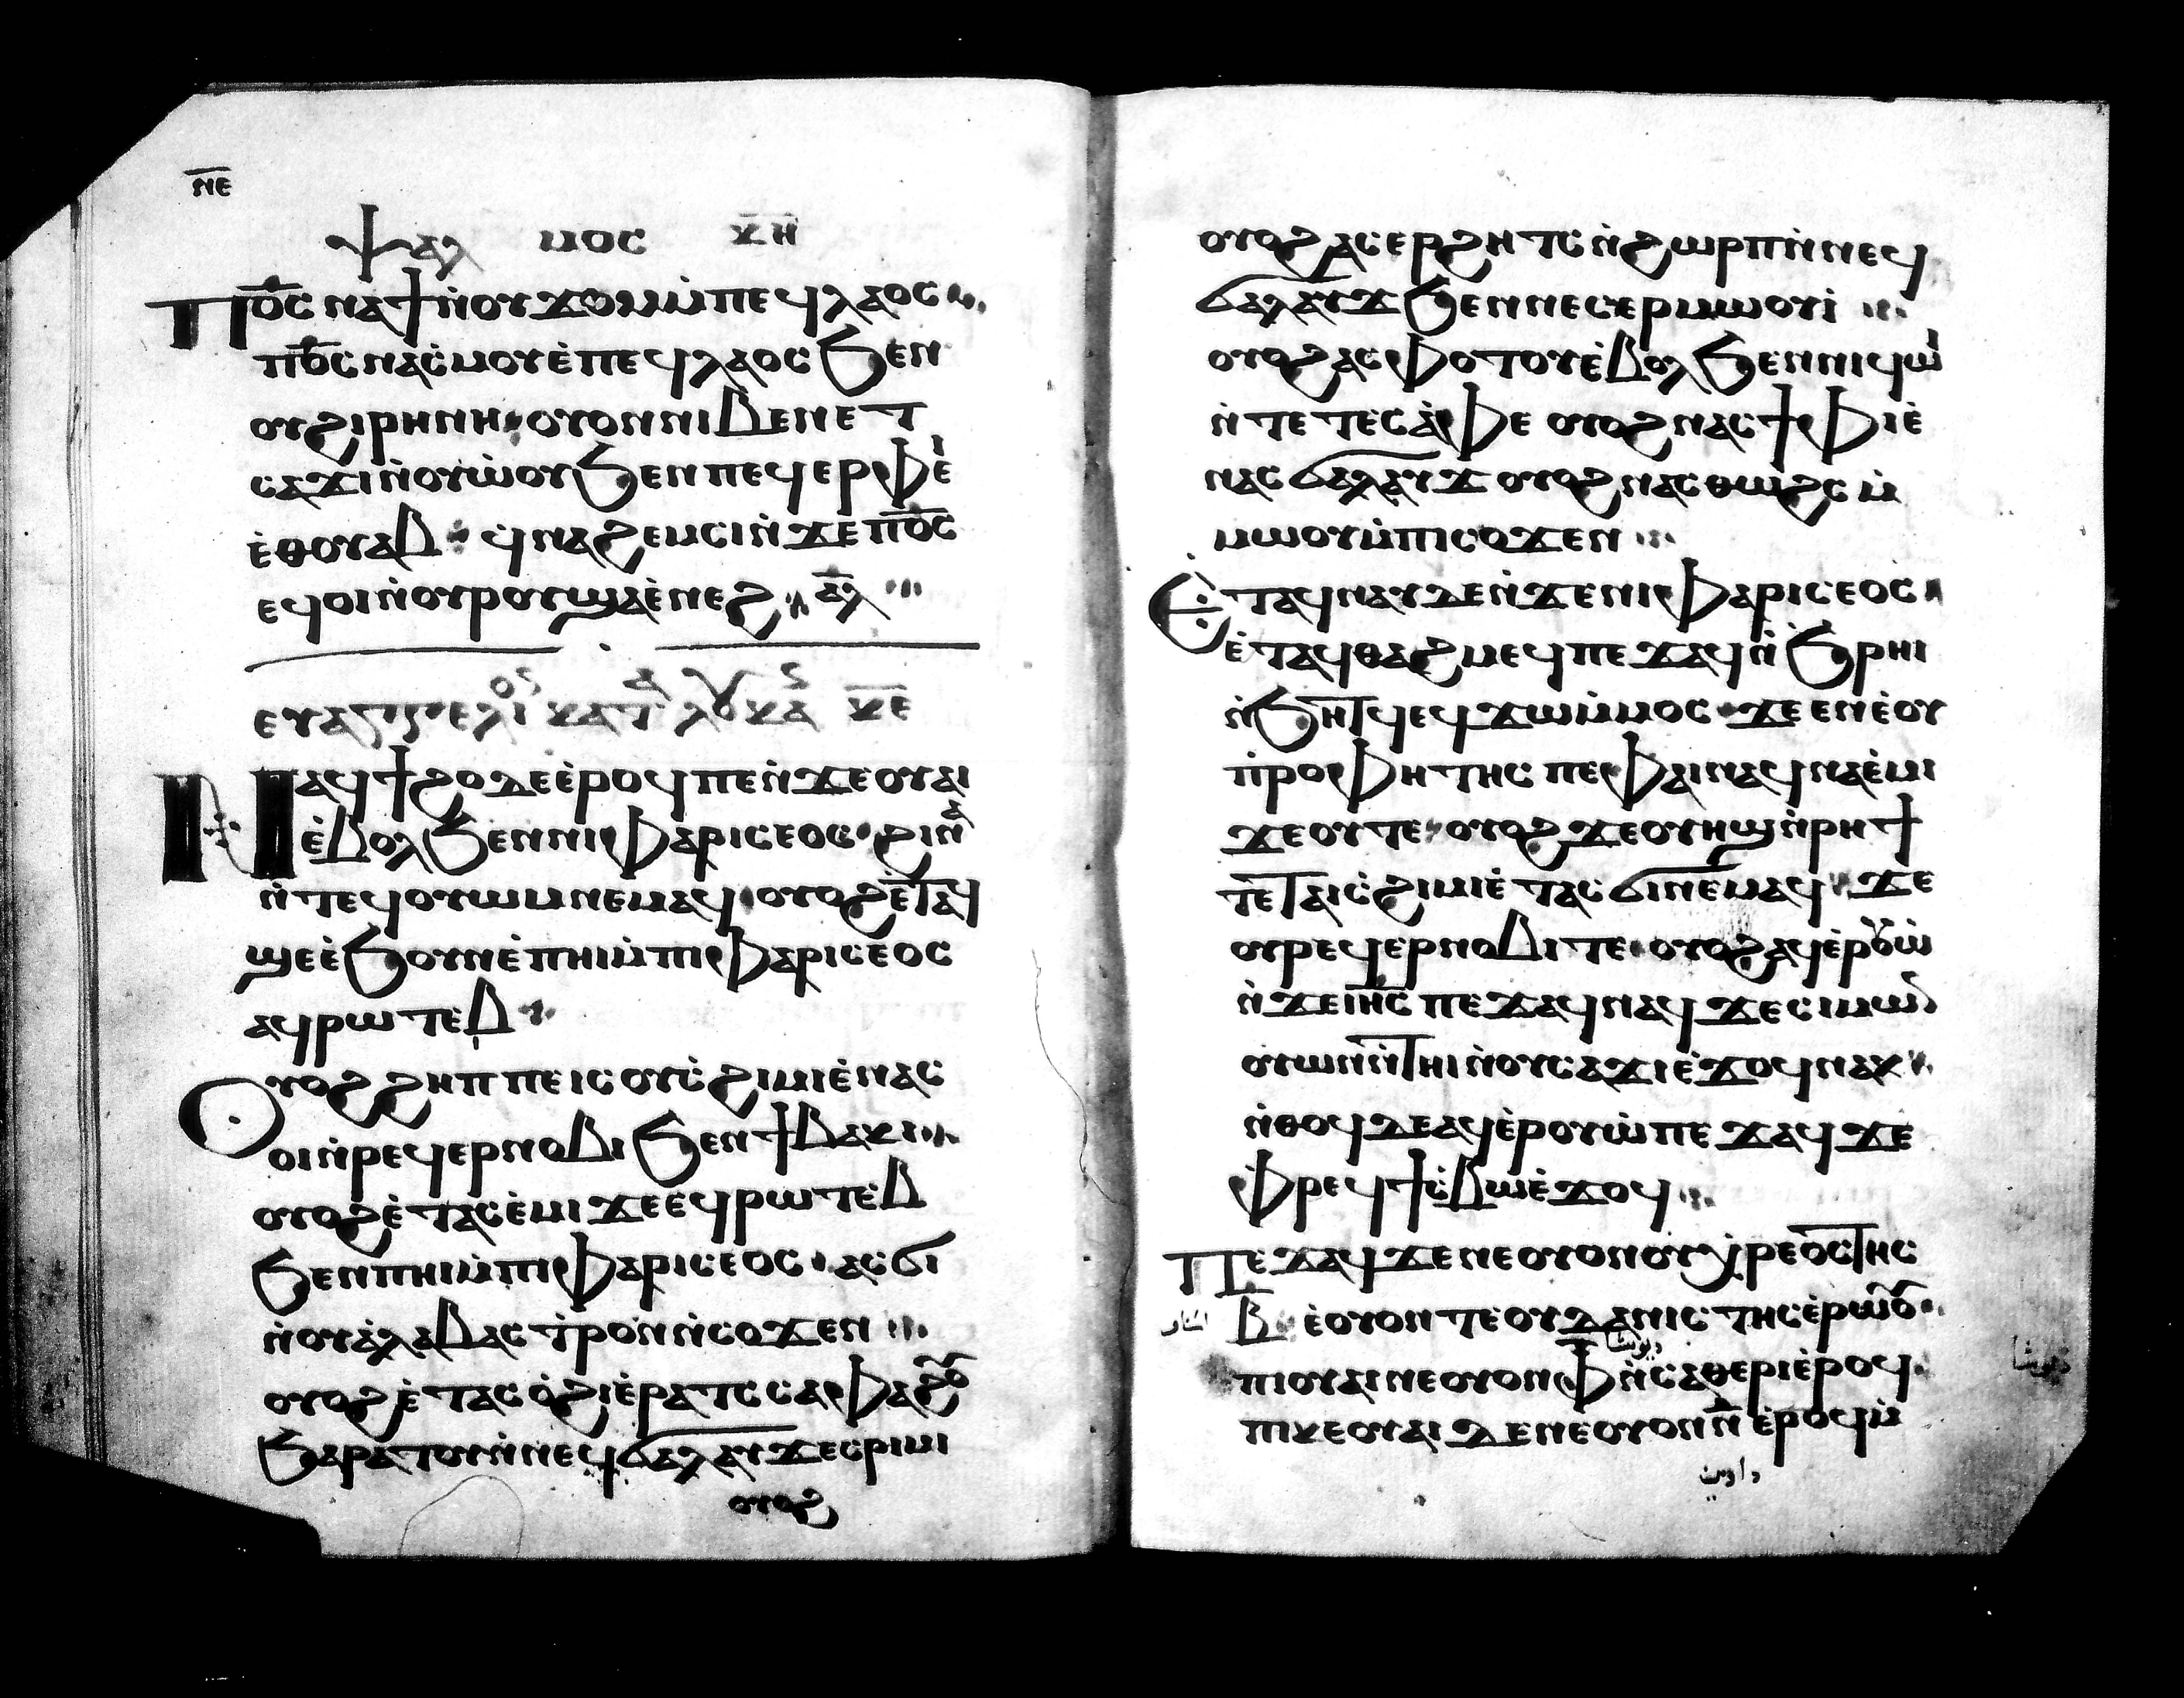 ⲛ̅ⲉ̅
ⲯⲁⲗ ⲙⲟⲥ ⲕ̅ⲏ̅
ⲡⲟ̅ⲥ̅ ⲛⲁϯⲛ̀ⲟⲩϫⲟⲙⲙ̀ⲡⲉϥⲗⲁⲟⲥ
ⲡⲟ̅ⲥ̅ⲛⲁⲥ̀ⲙⲟⲩⲉ̀ⲡⲉϥⲗⲁⲟⲥϧⲉⲛ
ⲟⲩϩⲓⲣⲏⲛⲏ ⲟⲩⲟⲛⲛⲓⲃⲉⲛⲉⲧ
ⲥⲁϫⲓⲛ̀ⲟⲩⲱ̀ⲟⲩϧⲉⲛⲡⲉϥⲉⲣⲫⲉ̀ⲓ
ⲉ̀ⲑⲟⲩⲁⲃ ϥⲛⲁϩⲉⲙⲥⲓⲛ̀ϫⲉⲡⲟ̅ⲥ̅
ⲉϥⲟⲓⲛ̀ⲟⲩⲣⲟⲩϣⲁⲉ̀ⲛⲉϩ ⲁ̅ⲗ̅
ⲉⲩⲁⲅⲅⲉⲗⲓⲟⲥ ⲕⲁⲧⲁ ⲗⲟⲩⲕⲁⲥ ⲕ̅ⲉ̅
ⲛⲁϥϯϩⲟⲇⲉⲉ̀ⲣⲟϥⲡⲉⲛ̀ϫⲉⲟⲩⲁⲓ
ⲉ̀ⲃⲟⲗϧⲉⲛⲛⲓⲫⲁⲣⲓⲥⲉⲟⲥ ϩⲓⲛⲁ
ⲛ̀ⲧⲉϥⲟⲩⲱⲙⲛⲉⲙⲁϥ ⲟⲩⲟϩⲉ̀ⲧⲁϥ
ϣⲉⲉ̀ϧⲟⲩⲛⲉ̀ⲡⲏⲓⲙ̀ⲡⲓⲫⲁⲣⲓⲥⲉⲟⲥ
ⲁϥⲣⲱⲧⲉⲃ
ⲟⲩⲟϩϩⲏⲡⲡⲉⲓⲥⲟⲩⲥ̀ϩⲓⲙⲓⲉ̀ⲛⲁⲥ
ⲟⲓⲛ̀ⲣⲉϥⲉⲣⲛⲟⲃⲓϧⲉⲛϯⲃⲁⲕⲓ
ⲟⲩⲟϩⲉ̀ⲧⲁⲥⲉ̀ⲙⲓϫⲉⲉ̀ϥⲣⲱⲧⲉⲃ
ϧⲉⲛⲡⲏⲓⲙ̀ⲡⲓⲫⲁⲣⲓⲥⲉⲟⲥ ⲁⲥϭⲓ
ⲛ̀ⲟⲩⲁ̀ⲗⲁⲃⲁⲥⲧⲣⲟⲛⲛ̀ⲥⲟϫⲉⲛ
ⲟⲩⲟϩⲉ̀ⲧⲁⲥⲟ̀ϩⲓⲉ̀ⲣⲁⲧⲥⲥⲁⲫⲁϩⲟⲩ
ϧⲁⲣⲁⲧⲟⲩⲛ̀ⲛⲉϥϭⲁⲗⲁⲩϫⲉⲥⲣⲓⲙⲓ
ⲟⲩⲟϩ
ⲟⲩⲟϩⲁⲥⲉⲣϩⲏⲧⲥⲛ̀ϩⲱⲣⲡⲛ̀ⲛⲉϥ
ϭⲁⲗⲁⲩϫϧⲉⲛⲛⲉⲥⲉⲣⲙⲱⲟⲩⲓ̀
ⲟⲩⲟϩⲁⲥⲫⲟⲧⲟⲩⲉ̀ⲃⲟⲗϧⲉⲛⲛⲓϥⲱⲓ
ⲛ̀ⲧⲉⲧⲉⲥⲁ̀ⲫⲉ ⲟⲩⲟϩⲛⲁⲥϯⲫⲓⲉ̀
ⲛⲁⲥϭⲁⲗⲁⲩϫ ⲟⲩⲟϩⲛⲁⲥⲑⲱϩⲥ ⲙ̀
ⲙⲱⲟⲩⲙ̀ⲡⲓⲥⲟϫⲉⲛ
ⲉ̀ⲧⲁϥⲛⲁⲩⲇⲉⲛ̀ϫⲉⲛⲓⲫⲁⲣⲓⲥⲉⲟⲥ
ⲉ̀ⲧⲁϥⲑⲁϩⲙⲉϥⲡⲉϫⲁϥⲛ̀ϧⲣⲏⲓ
ⲛ̀ϧⲏⲧϥⲉϥϫⲱⲙ̀ⲙⲟⲥ ϫⲉⲉⲛⲉ̀ⲟⲩ
ⲡ̀ⲣⲟⲫⲏⲧⲏⲥ ⲡⲉⲫⲁⲓⲛⲁϥⲛⲁⲉ̀ⲙⲓ
ϫⲉⲟⲩⲧⲉ ⲟⲩⲟϩϫⲉⲟⲩⲏϣⲛ̀ⲣⲏϯ
ⲧⲉ̀ⲧⲁⲓⲥ̀ϩⲓⲙⲓⲉ̀ⲧⲁⲥϭⲓⲛⲉⲙⲁϥ ϫⲉ
ⲟⲩⲣⲉϥⲉⲣⲛⲟⲃⲓⲧⲉ ⲟⲩⲟϩⲁϥⲉ̀ⲣⲟⲩⲱ̀
ⲛ̀ϫⲉⲓⲏ̅ⲥ̅ ⲡⲉϫⲁϥⲛⲁϥϫⲉⲥⲓⲙⲱⲛ
ⲟⲩⲱⲛⲛ̀ⲧⲏⲓⲛ̀ⲟⲩⲥⲁϫⲓⲉ̀ϫⲟϥⲛⲁⲕ
ⲛ̀ⲑⲟϥⲇⲉⲁϥⲉ̀ⲣⲟⲩⲱ̀ⲡⲉϫⲁϥϫⲉ
ⲫⲣⲉϥϯⲥ̀ⲃⲱⲉ̀ϫⲟϥ
ⲡⲉϫⲁϥϫⲉⲛⲉⲟⲩⲟⲛⲟⲩⲭⲣⲉⲟⲥⲧⲏⲥ
ⲃ̅ ⲉ̀ⲟⲩⲟⲛⲧⲉⲟⲩⲇⲁⲛⲓⲥⲧⲏⲥⲉ̀ⲣⲱⲟⲩ
ⲡⲓⲟⲩⲁⲓⲛⲉⲟⲩⲟⲛⲫ̅ⲛ̀ⲥⲁⲑⲉⲣⲓⲉ̀ⲣⲟϥ
ⲡⲓⲕⲉⲟⲩⲁⲓⲇⲉⲛⲉⲟⲩⲟⲛⲛ̅ ⲉ̀ⲣⲟϥⲙ̀